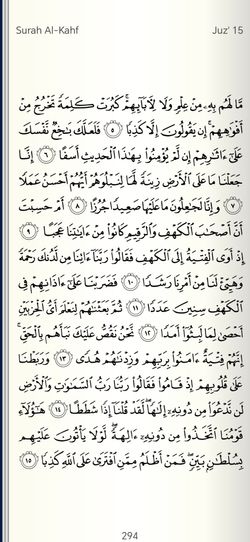 Surah Al-Kahf Juz' 15
مَّا لَهُم بِهِۦ مِنْ عِلْمٍ وَلَا لِـَٔابَآئِهِمْ ۚ كَبُرَتْ كَلِمَةً تَخْرُجُ مِنْ
أَفْوَٰهِهِمْ ۚ إِن يَقُولُونَ إِلَّا كَذِبًا ٥ فَلَعَلَّكَ بَـٰخِعٌ نَّفْسَكَ
عَلَىٰٓ ءَاثَـٰرِهِمْ إِن لَّمْ يُؤْمِنُوا۟ بِهَـٰذَا ٱلْحَدِيثِ أَسَفًا ٦ إِنَّا
جَعَلْنَا مَا عَلَى ٱلْأَرْضِ زِينَةً لَّهَا لِنَبْلُوَهُمْ أَيُّهُمْ أَحْسَنُ عَمَلًا
٧ وَإِنَّا لَجَـٰعِلُونَ مَا عَلَيْهَا صَعِيدًا جُرُزًا ٨ أَمْ حَسِبْتَ
أَنَّ أَصْحَـٰبَ ٱلْكَهْفِ وَٱلرَّقِيمِ كَانُوا۟ مِنْ ءَايَـٰتِنَا عَجَبًا ٩
إِذْ أَوَى ٱلْفِتْيَةُ إِلَى ٱلْكَهْفِ فَقَالُوا۟ رَبَّنَآ ءَاتِنَا مِن لَّدُنكَ رَحْمَةً
وَهَيِّئْ لَنَا مِنْ أَمْرِنَا رَشَدًا ١٠ فَضَرَبْنَا عَلَىٰٓ ءَاذَانِهِمْ فِى
ٱلْكَهْفِ سِنِينَ عَدَدًا ١١ ثُمَّ بَعَثْنَـٰهُمْ لِنَعْلَمَ أَىُّ ٱلْحِزْبَيْنِ
أَحْصَىٰ لِمَا لَبِثُوٓا۟ أَمَدًا ١٢ نَّحْنُ نَقُصُّ عَلَيْكَ نَبَأَهُم بِٱلْحَقِّ ۚ
إِنَّهُمْ فِتْيَةٌ ءَامَنُوا۟ بِرَبِّهِمْ وَزِدْنَـٰهُمْ هُدًى ١٣ وَرَبَطْنَا
عَلَىٰ قُلُوبِهِمْ إِذْ قَامُوا۟ فَقَالُوا۟ رَبُّنَا رَبُّ ٱلسَّمَـٰوَٰتِ وَٱلْأَرْضِ
لَن نَّدْعُوَا۟ مِن دُونِهِۦٓ إِلَـٰهًا ۖ لَّقَدْ قُلْنَآ إِذًا شَطَطًا ١٤ هَـٰٓؤُلَآءِ
قَوْمُنَا ٱتَّخَذُوا۟ مِن دُونِهِۦٓ ءَالِهَةً ۖ لَّوْلَا يَأْتُونَ عَلَيْهِم
بِسُلْطَـٰنٍۭ بَيِّنٍ ۖ فَمَنْ أَظْلَمُ مِمَّنِ ٱفْتَرَىٰ عَلَى ٱللَّهِ كَذِبًا ١٥
294